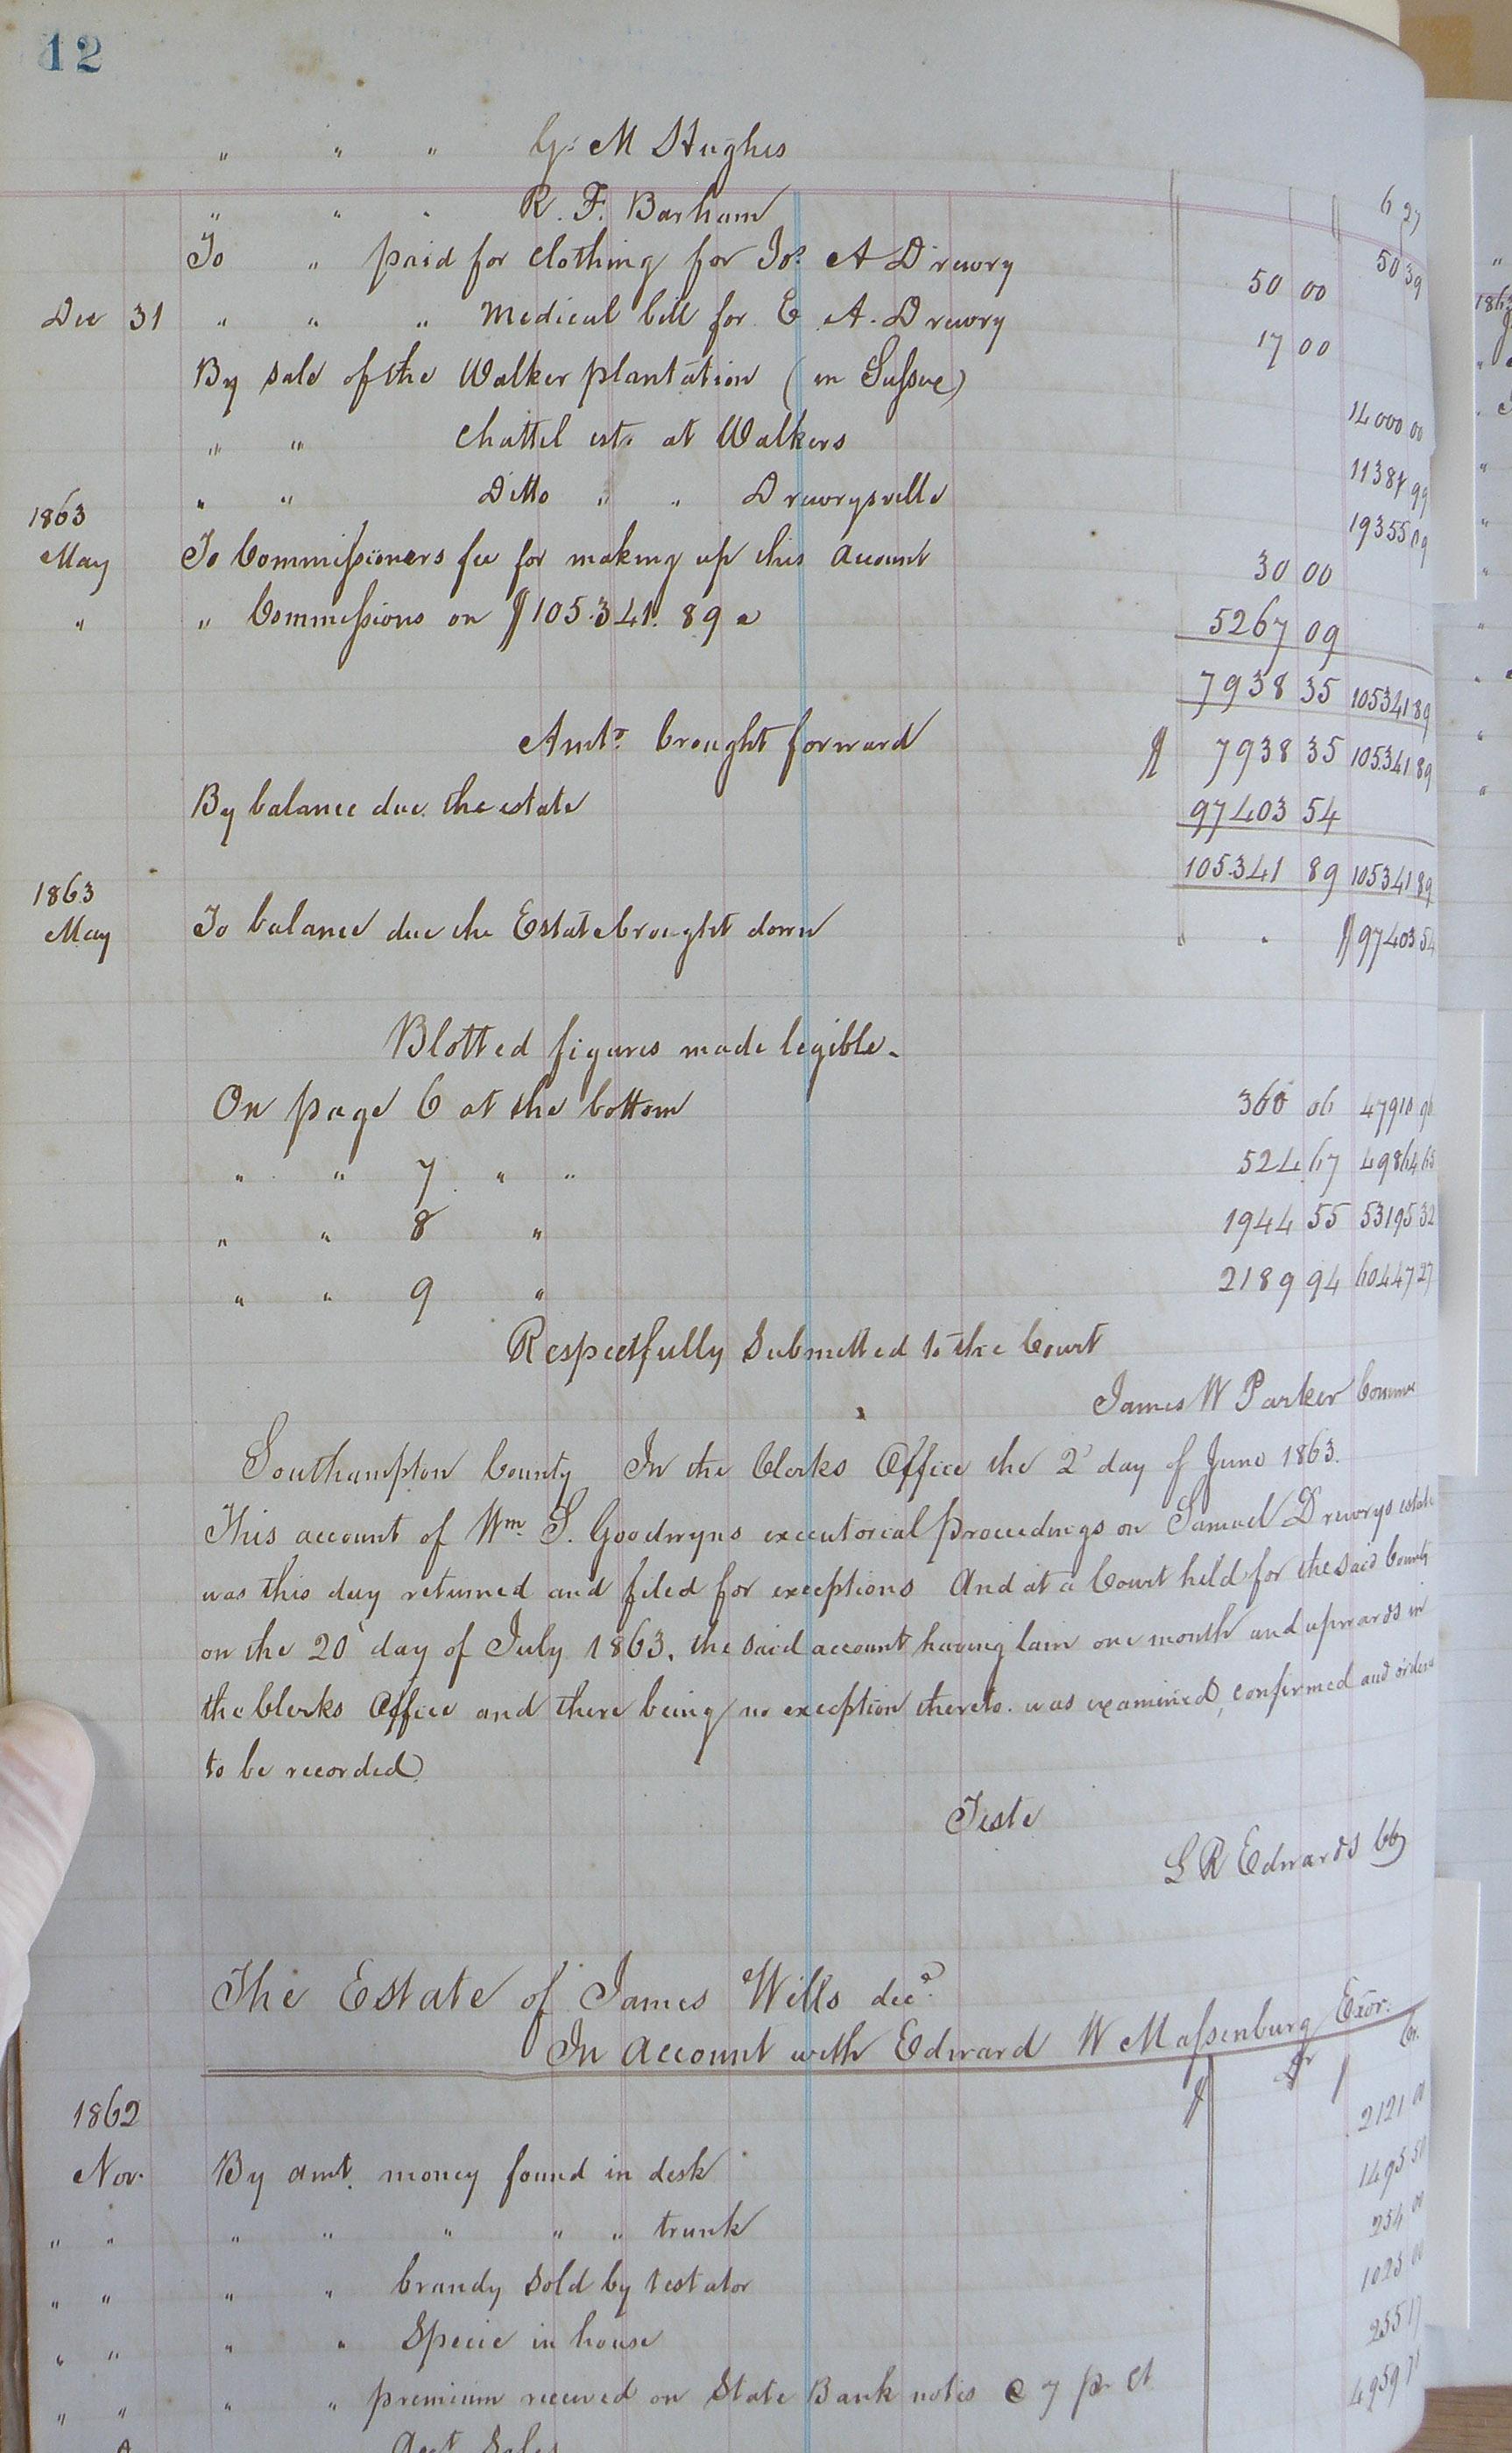 12
" " " G. M Hughes 6 27
" " " R. F. Barham 50 39
To " paid for clothing for Jos. A Drewry 50 00
Dec 31 " " " Medical bill for E. A. Drewry 17 00
By sale of the Walker plantation (in Sussex) 14000 00
" " Chattel est. at Walkers 11387 99
" " Ditto " " Drewrysville 19355 09
1863
May To Commissioners fee for making up this account 30 00
" " Commissions on $105.341.89 5267 09
7938 35 105341 89
Amts. brought forward $ 7938 35 105341 89
By balance due the estate 97403 54
105341 89 105341 89
1863
May To balance due the Estate brought down $97403 54
Blotted figures made legible.
On page 6 at the bottom 360 06 47910
" " 7 " " 524 67 49864 65
" " 8 " 1944 55 53195 32
" " 9 " 2189 94 60447 27
Respectfully Submitted to the Court
James W Parker Commr
Southampton County In the Clerks Office the 2' day of June 1863.
This account of Wm. S. Goodwyns executorial proceedings on Samuel Drewrys estate
was this day returned and filed for exceptions And at a Court held for the said County
on the 20' day of July 1863, the said account having lain one month and upwards in
the Clerks Office and there being no exception thereto. was examined, confirmed and ordered
to be recorded.
Teste
L R Edwards CC
The Estate of James Wills decd.
In Account with Edward W Massenburg Exor.
$ Dr $ Cr.
1862 2121
Nov. By amt. money found in desk 1495 50
" " " " " " " trunk 254 00
" " " " brandy sold by testator 1025 00
" " " " Specie in house 255 17
" " " " premium received on State Bank notes @ 7 pr ct 4959
Acct Sales